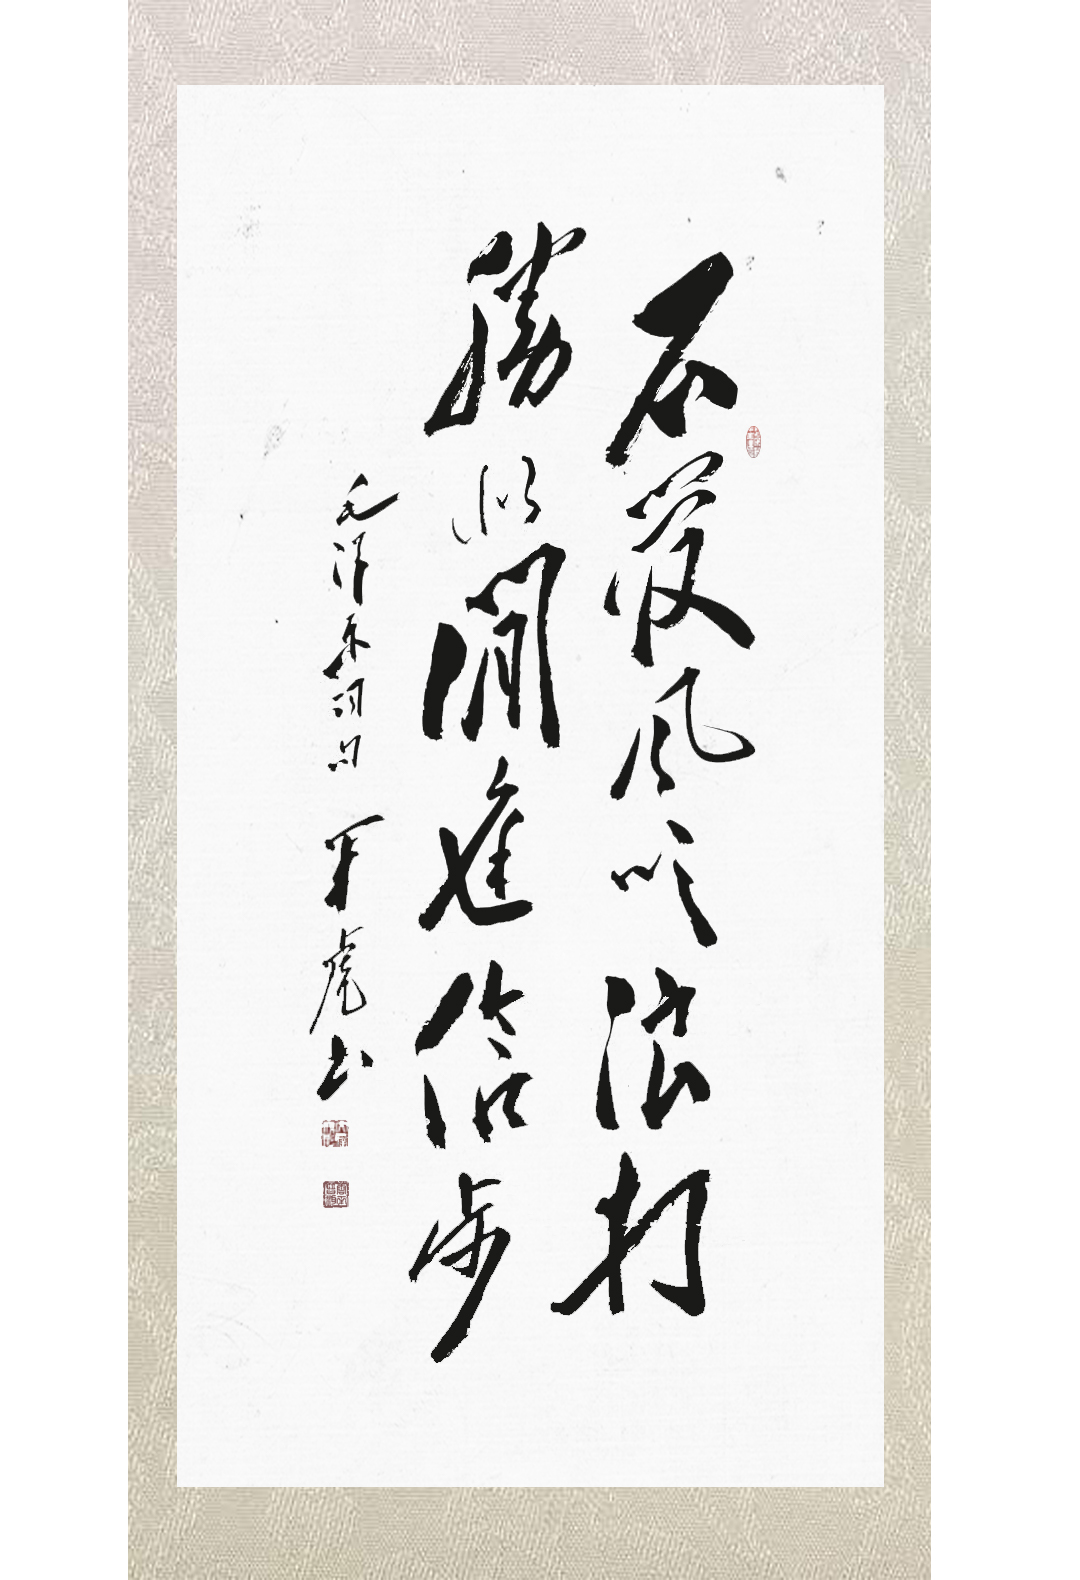 不管风吹浪打
勝似閒庭信步
毛泽东词句 军虎书